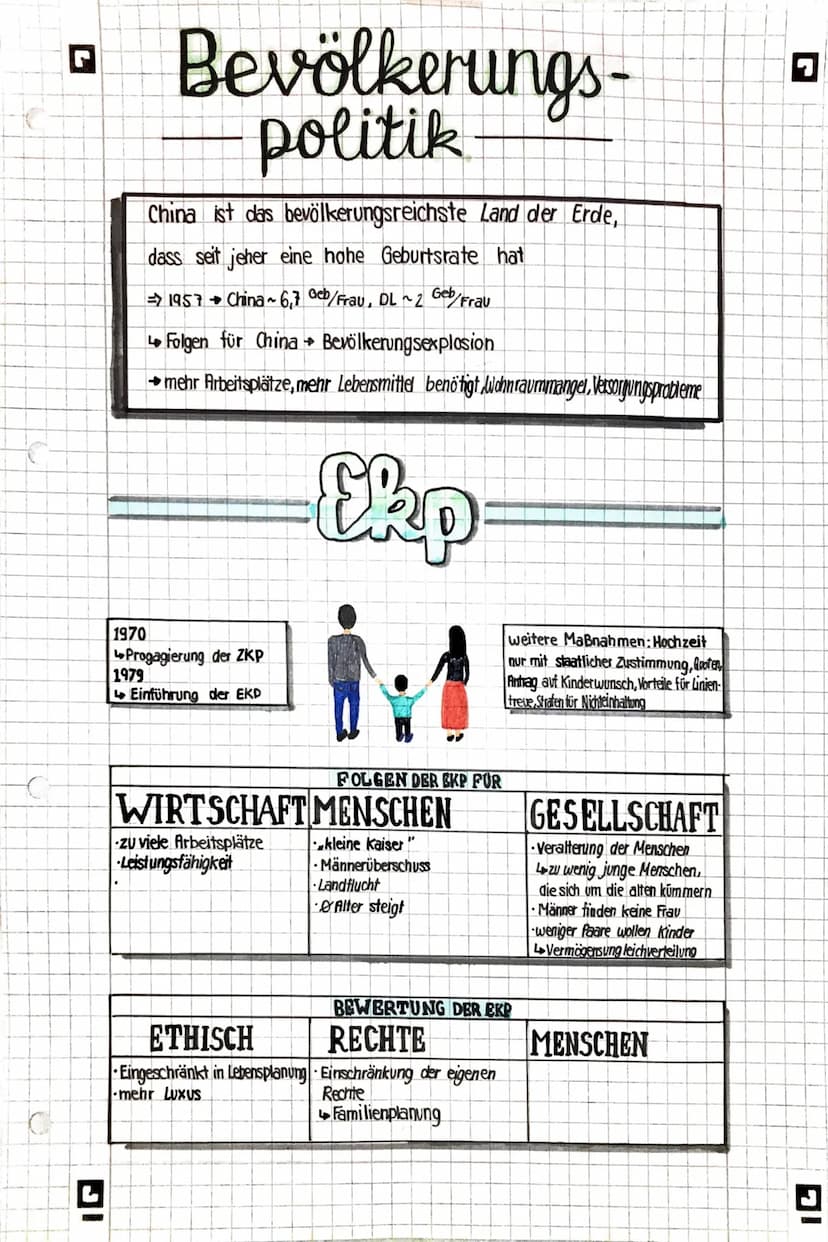 Bevölkerungs-
politik
China ist das bevölkerungsreichste Land der Erde,
dass seit jeher eine hohe Geburtsrate hat
⇒ 1957 → China ~ 6,7 Geb/Frau, DL ~ 2 Geb/Frau
↳ Folgen für China → Bevölkerungsexplosion
→ mehr Arbeitsplätze, mehr Lebensmittel benötigt, Wohnraummangel, Versorgungsprobleme
Ekp
1970
↳ Progagierung der ZKP
1979
↳ Einführung der EKP
weitere Maßnahmen: Hochzeit
nur mit staatlicher Zustimmung, Quoten,
Antrag auf Kinderwunsch, Vorteile für Linien-
treue, Strafen für Nichteinhaltung
FOLGEN DER EKP FÜR
WIRTSCHAFT
· zu viele Arbeitsplätze
· Leistungsfähigkeit
·
MENSCHEN
· „kleine Kaiser"
· Männerüberschuss
· Landflucht
· Ø Alter steigt
GESELLSCHAFT
· Veralterung der Menschen
↳ zu wenig junge Menschen,
die sich um die alten kümmern
· Männer finden keine Frau
· weniger Paare wollen Kinder
↳ Vermögensungleichverteilung
BEWERTUNG DER EKP
ETHISCH
· Eingeschränkt in Lebensplanung
· mehr Luxus
RECHTE
· Einschränkung der eigenen
Rechte
↳ Familienplanung
MENSCHEN